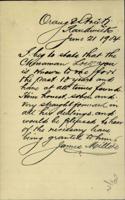 Orange Street
Randwick
June 21 1904
I beg to state that the
Chinaman
is known to me for
the past 10 years and
have at all times found
him honest, sober and
very straightforward in
all his dealings, and
would be pleased to hear
of the necessary leave
being granted to him
James Mills